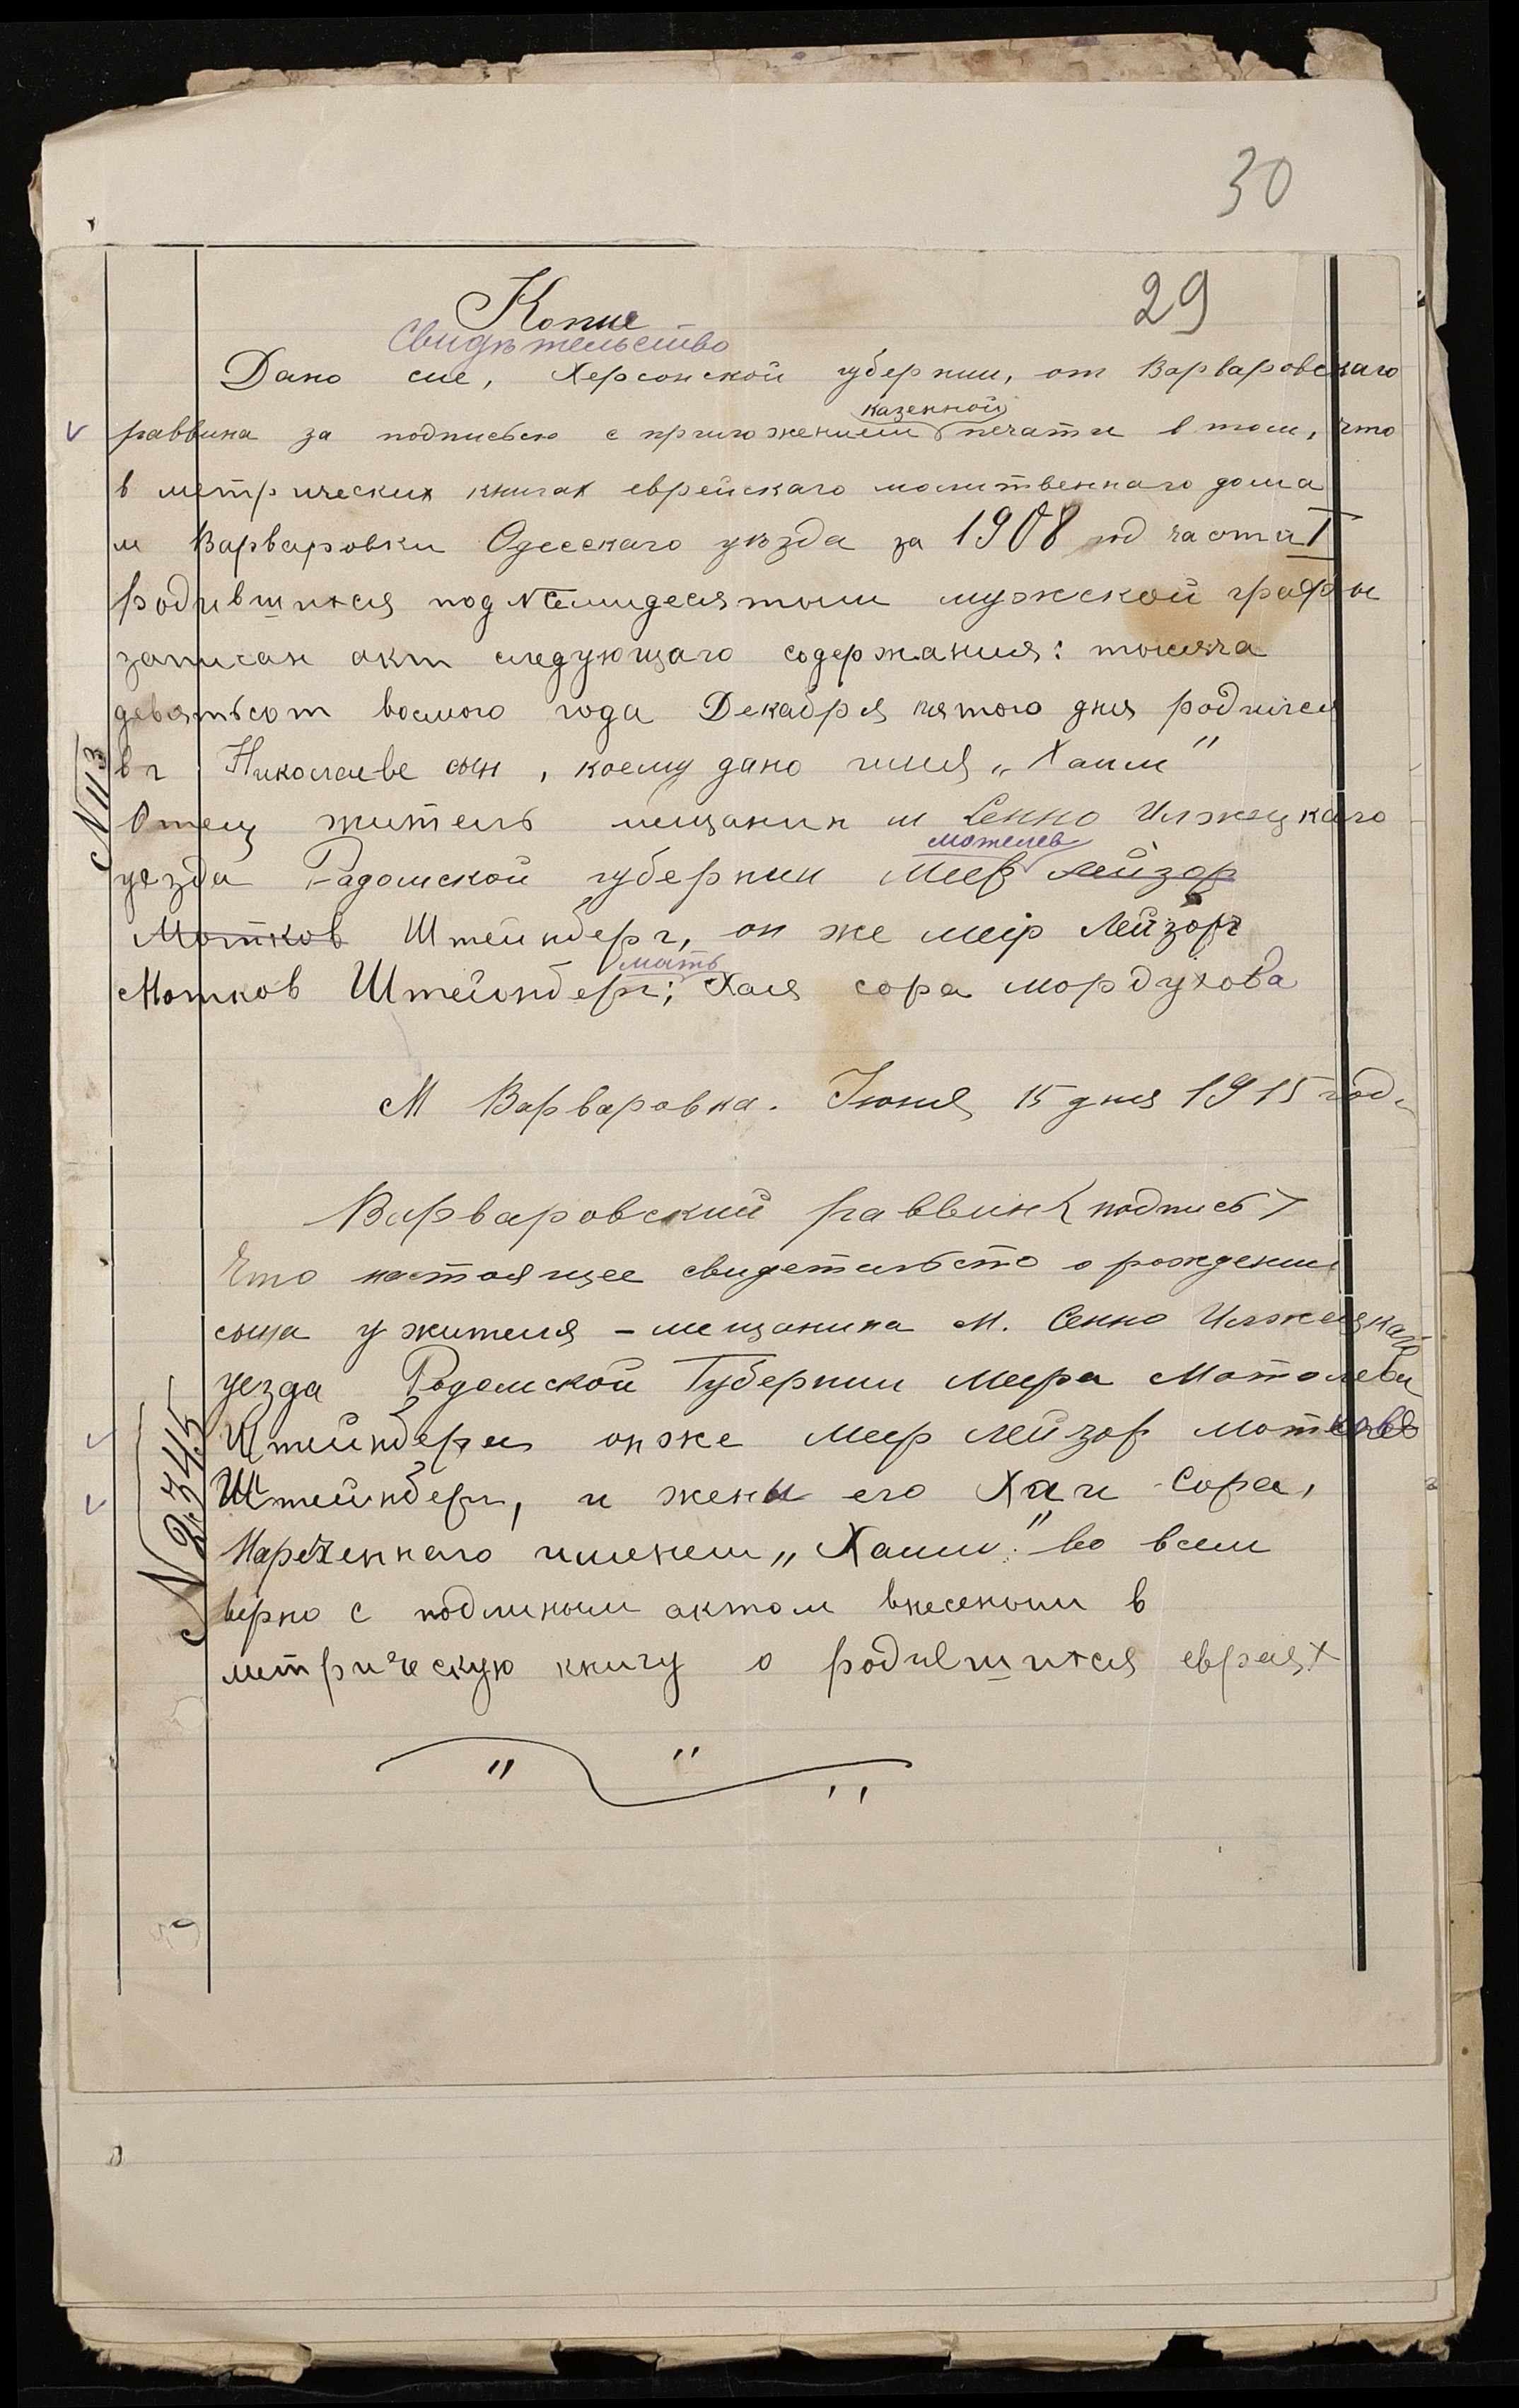 30
29
Копие
Свидѣтельство
Дано сие, Херсонской губернии, от Варваровскаго
казенной
раввина за подписью с приложением печати в том, что
в метрических книгах еврейскаго молитвеннаго дома
м Варваровки Одесскаго уѣзда за 1908 год части I
родившихся под N Семидесятым мужской графы
записан акт следующаго содержания: тысяча
девятьсот восмого года Декабря пятого дня родился
в г Николаеве сын, коему дано имя „Хаим"
N 113
Отец житель мещанин м Сенно Илжецкаго
мотелев
уезда Радомской губернии Меер Лейзор
Мотков Штейнберг, он же меір Лейзор
мать
Мотков Штейнберг; Хая сора мордухова
М Варваровка. Июня 15 дня 1915 год.
Варваровский раввин (подпись)
Что настоящее свидетельсто о рождении
сына у жителя - мещанина м. Сенно Илжецкаго
уезда Радомской Губернии меера Мотелева
Штейнберга он же меер лейзор мотковв
N 2345
Штейнберг, и жены его Хаи Сора,
Нареченнаго именем „Хаим" во всем
верно с подлиным актом внесеным в
метрическую книгу о родившихся евреях